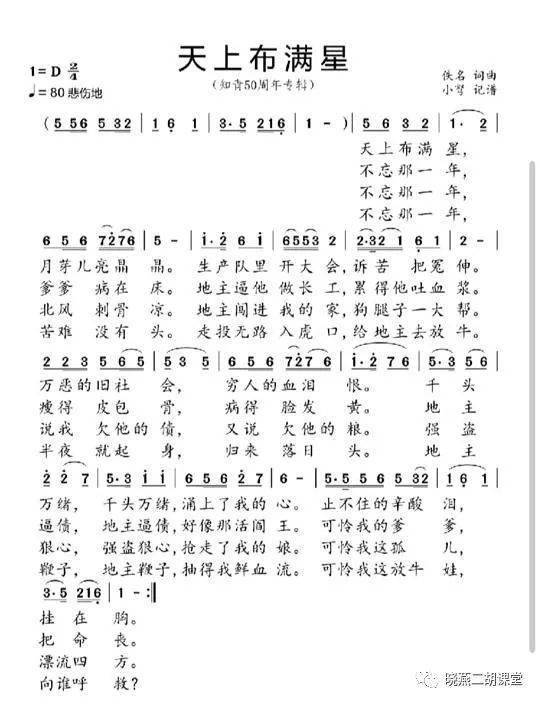 天上布满星
(知青50周年专辑)
1=D 2/4
♩=80 悲伤地
佚名 词曲
记谱
( 5 5 6 5 3 2 | 1 6 1 | 3· 5 2 1 6 | 1 - ) | 5 6 3 2 | 1· 2 |
天上布满星,
不忘那一年,
不忘那一年,
不忘那一年,
6 5 6 7 2 7 6 | 5 - | 1· 2 6 1 | 6 5 5 3 2 | 2·3 2 1 6 | 1 - |
月芽儿亮晶晶。生产队里开大会,诉苦把冤伸。
爹爹病在床。地主逼他做长工,累得他吐血浆。
北风刺骨凉。地主闯进我的家,狗腿子一大帮。
苦难没有头。走投无路入虎口,给地主去放牛。
2 2 3 5 6 5 | 5·3 5 | 6 5 6 7 2 7 6 | 5 - | 5·3 5 |
万恶的旧社会,穷人的血泪恨。千头
瘦得皮包骨,病得脸发黄。地主
说我欠他的债,又说欠他的粮。强盗
半夜就起身,归来落日头。地主
2 2 7 | 5·3 1 1 | 6 5 6 2 7 | 6 - | 5·5 5 6 5 3 2 | 1 6 1 |
万绪,千头万绪,涌上了我的心。止不住的辛酸泪,
逼债,地主逼债,好像那活阎王。可怜我的爹爹,
狠心,强盗狠心,抢走了我的娘。可怜我这孤儿,
鞭子,地主鞭子,抽得我鲜血流。可怜我这放牛娃,
3·5 2 1 6 | 1 - :||
挂在胸。
把命丧。
漂流四方。
向谁呼救?
晓燕二胡课堂